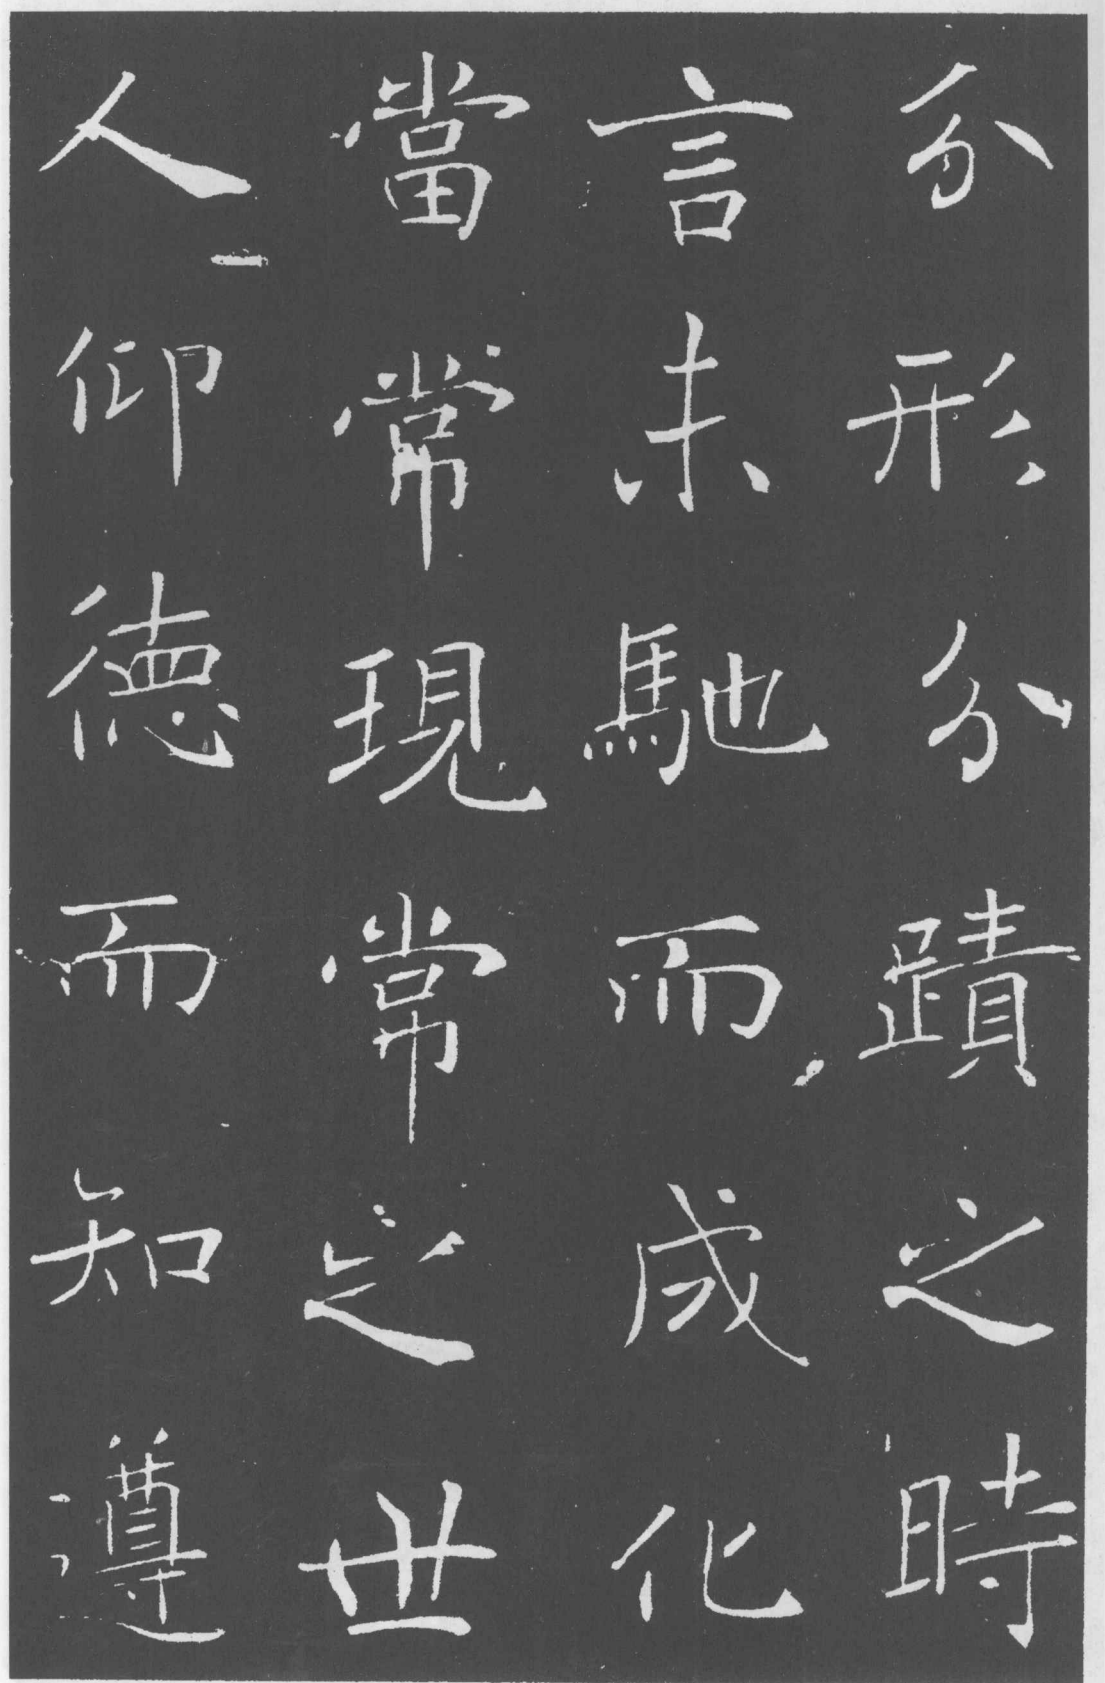 分形分蹟之時
言未馳而成化
當常現常之世
人仰德而知遵